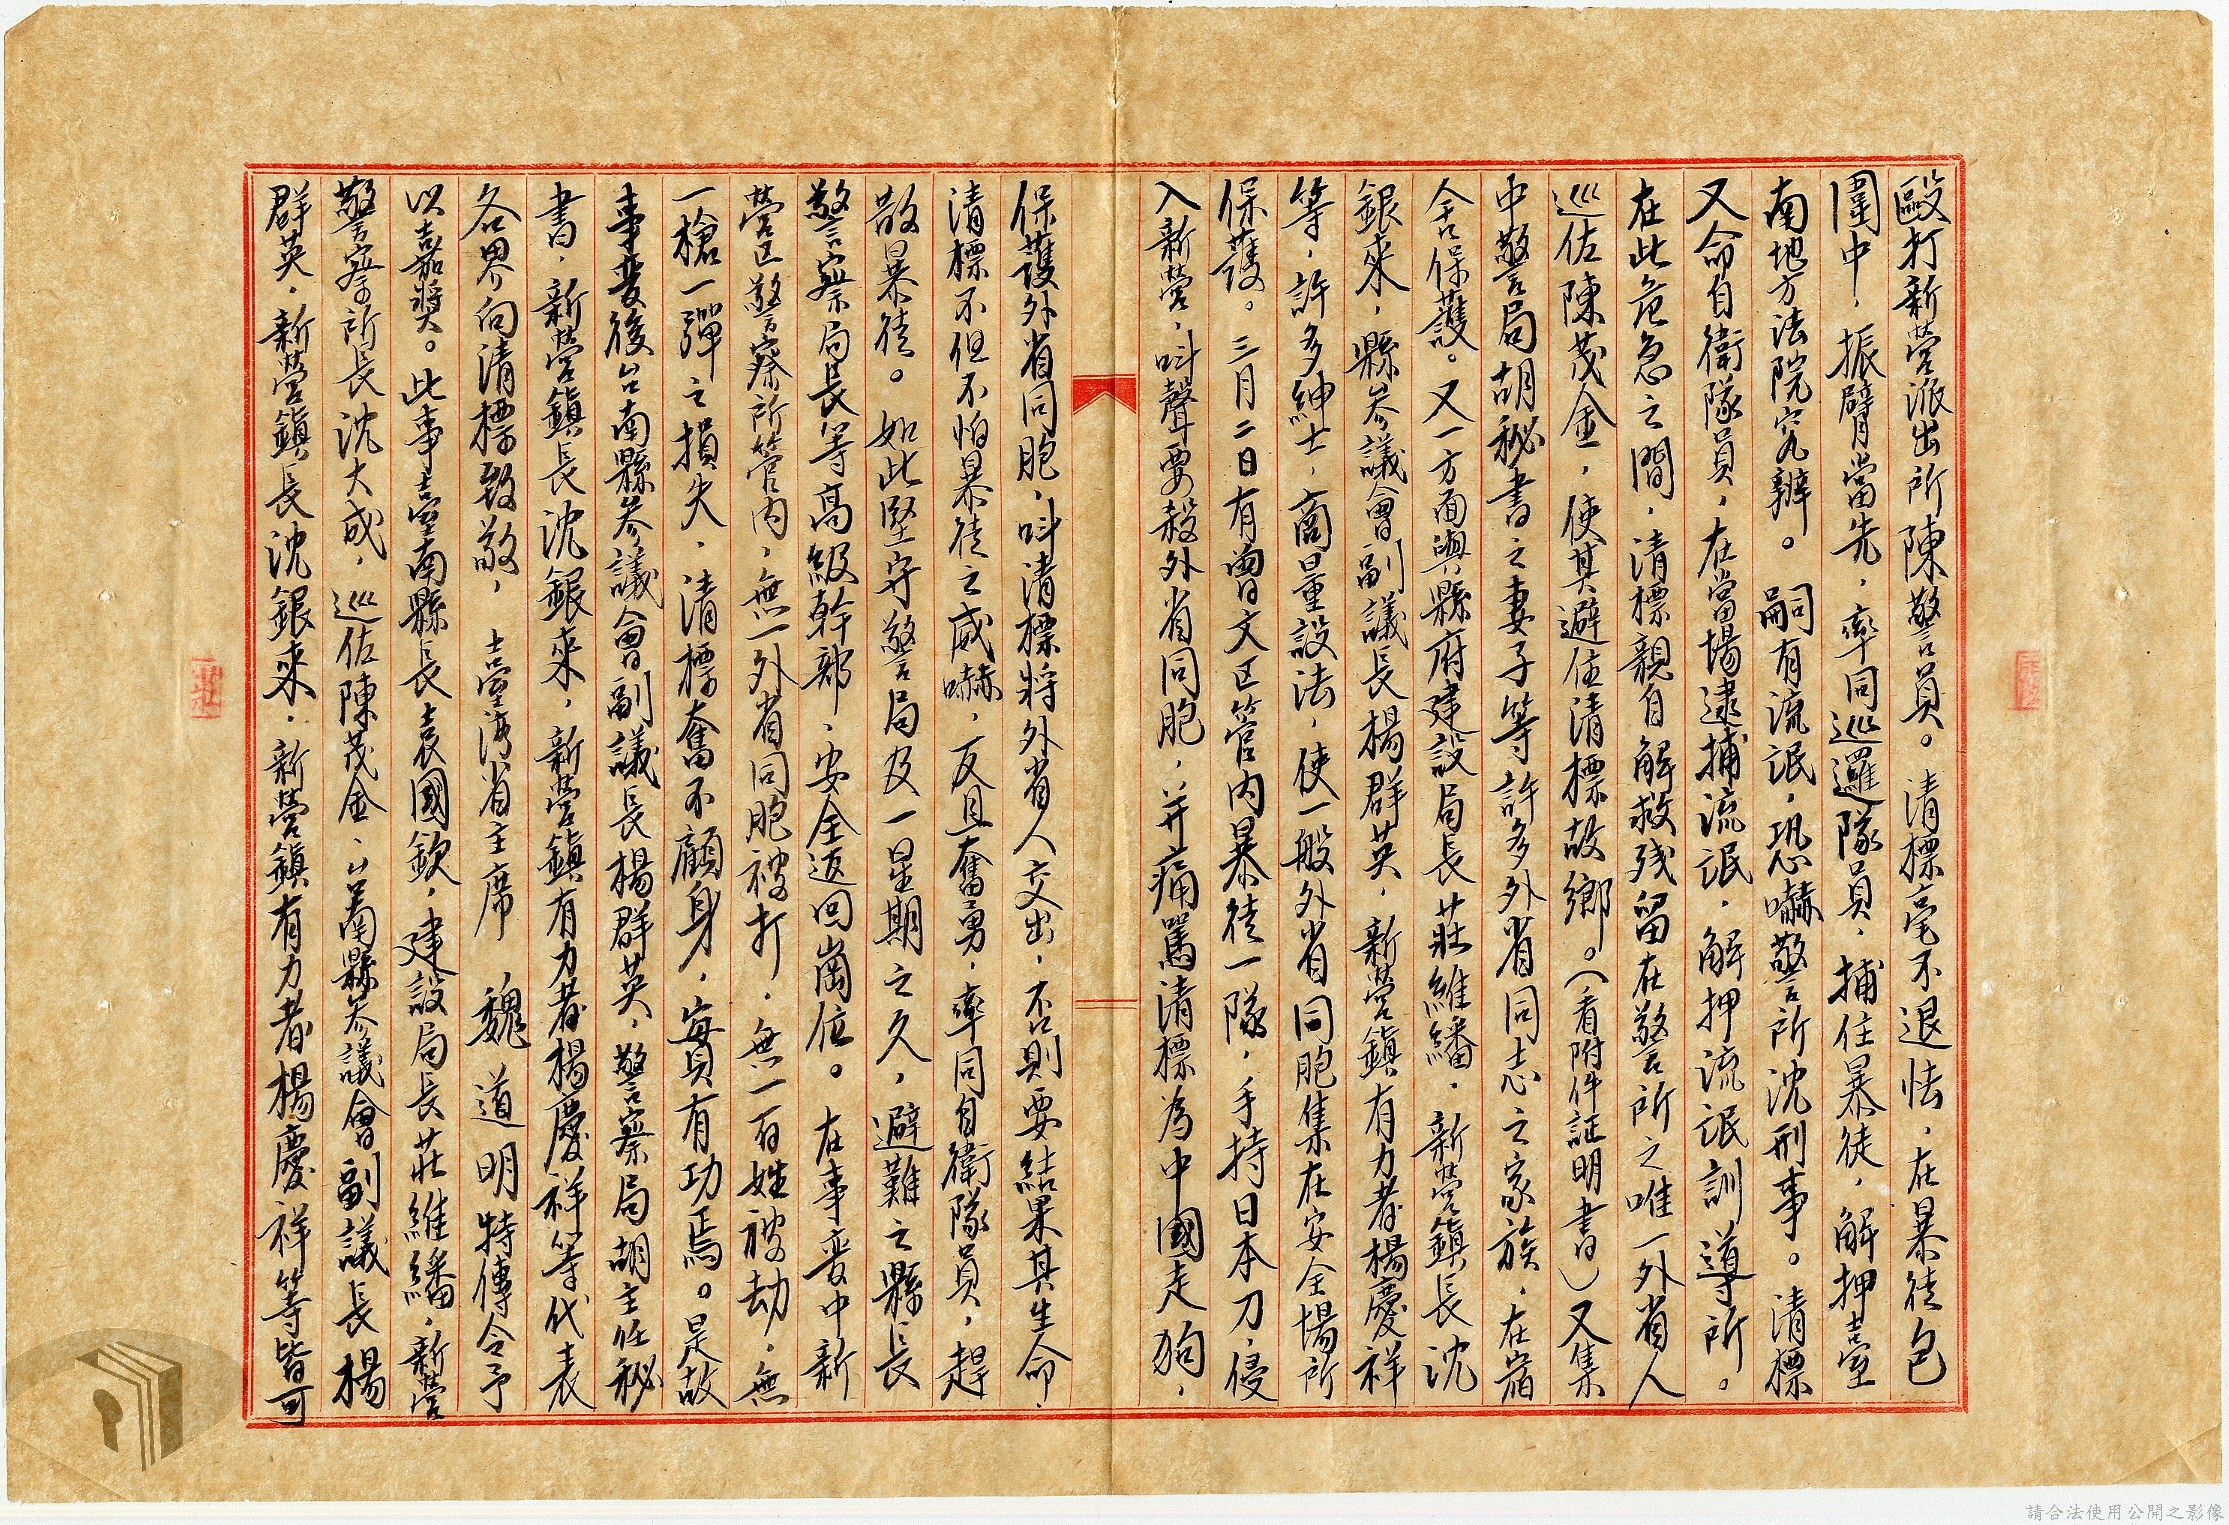 毆打新營派出所陳警員。清標毫不退怯，在暴徒包
圍中，振臂當先，率同巡邏隊員，捕住暴徒，解押臺
南地方法院究辦。嗣有流氓，恐嚇警所沈刑事。清標
又命自衛隊員，在當場逮捕流氓，解押流氓訓導所。
在此危急之間，清標親自解救殘留在警所之唯一外省人
巡佐陳茂金，使其避住清標故鄉。（看附件証明書）又集
中警局胡秘書之妻子等許多外省同志之家族，在宿
舍保護。又一方面與縣府建設局長莊維繙，新營鎮長沈
銀來，縣參議會副議長楊群英，新營鎮有力者楊慶祥
等，許多紳士，商量設法，使一般外省同胞集在安全場所
保護。三月二日有曾文区管內暴徒一隊，手持日本刀，侵
入新營，叫聲要殺外省同胞，并痛罵清標為中國走狗，
保護外省同胞，叫清標將外省人交出，不則要結果其生命，
清標不但不怕暴徒之威嚇，反且奮勇，率同自衛隊員，趕
散暴徒。如此堅守警局及一星期之久，避難之縣長
警察局長等高級幹部，安全返回崗位。在事變中新
營区警察所管內，無一外省同胞被打，無一百姓被劫，無
一槍一彈之損失，清標奮不顧身，實有功焉。是故
事變後台南縣參議會副議長楊群英，警察局胡主任秘
書，新營鎮長沈銀來，新營鎮有力者楊慶祥等代表
各界向清標致敬，臺灣省主席　魏　道明特傳令予
以嘉獎。此事臺南縣長袁國欽，建設局長莊維繙，新營
警察所長沈大成，巡佐陳茂金、台南縣參議會副議長楊
群英，新營鎮長沈銀來，新營鎮有力者楊慶祥等皆可
請合法使用公開之影像